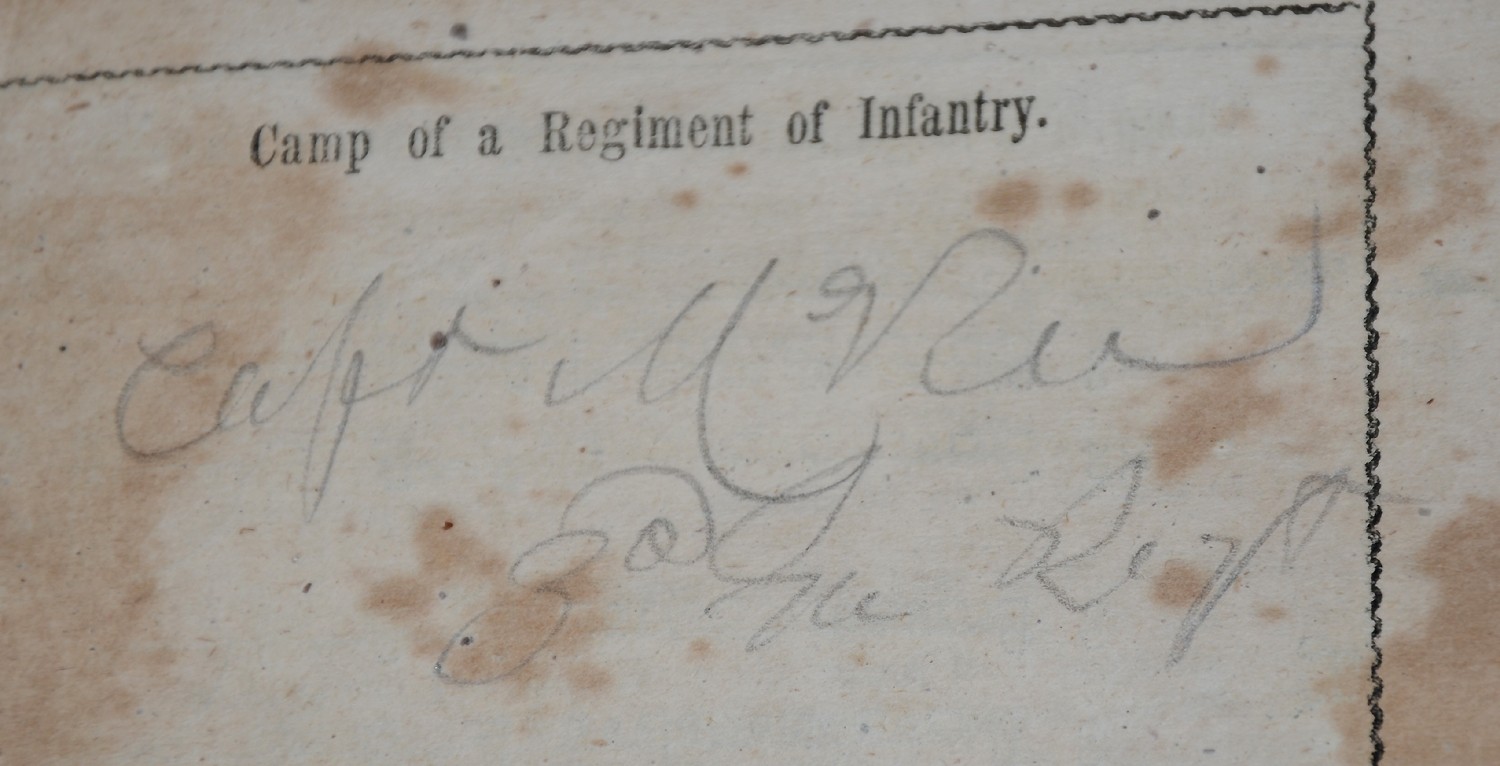 Camp of a Regiment of Infantry.
Capt M
30th Regt